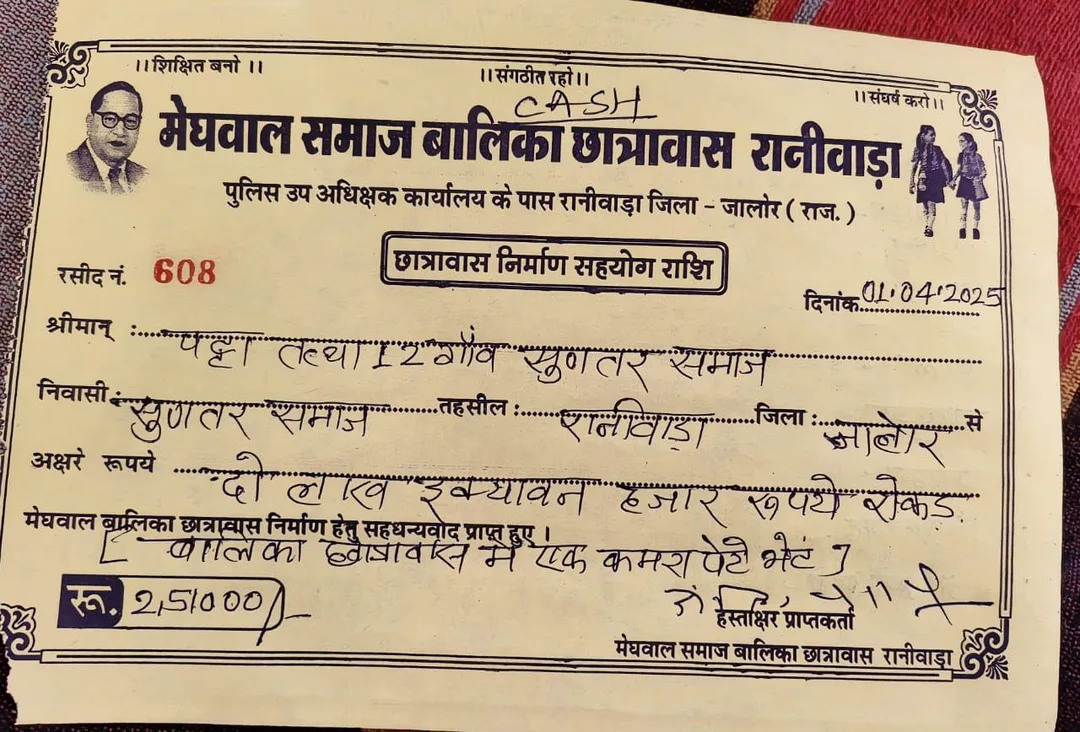 ।।शिक्षित बनो ।।
।।संगठीत रहो।।
।।संघर्ष करो।।
CASH
मेघवाल समाज बालिका छात्रावास रानीवाड़ा
पुलिस उप अधिक्षक कार्यालय के पास रानीवाड़ा जिला - जालोर ( राज. )
छात्रावास निर्माण सहयोग राशि
रसीद नं. 608
दिनांक 01.04.2025
श्रीमान् : पट्टा तत्था 12 गाँव सुणतर समाज
निवासी : सुणतर समाज तहसील : रानीवाड़ा जिला : जालोर से
अक्षरे रूपये दो लाख इक्यावन हजार रूपये रोकड़
मेघवाल बालिका छात्रावास निर्माण हेतु सहधन्यवाद प्राप्त हुए ।
[ बालिका छात्रावास में एक कमरा पेटे भेंट ]
रू. 2,51000/-
हस्ताक्षर प्राप्तकर्ता
मेघवाल समाज बालिका छात्रावास रानीवाड़ा